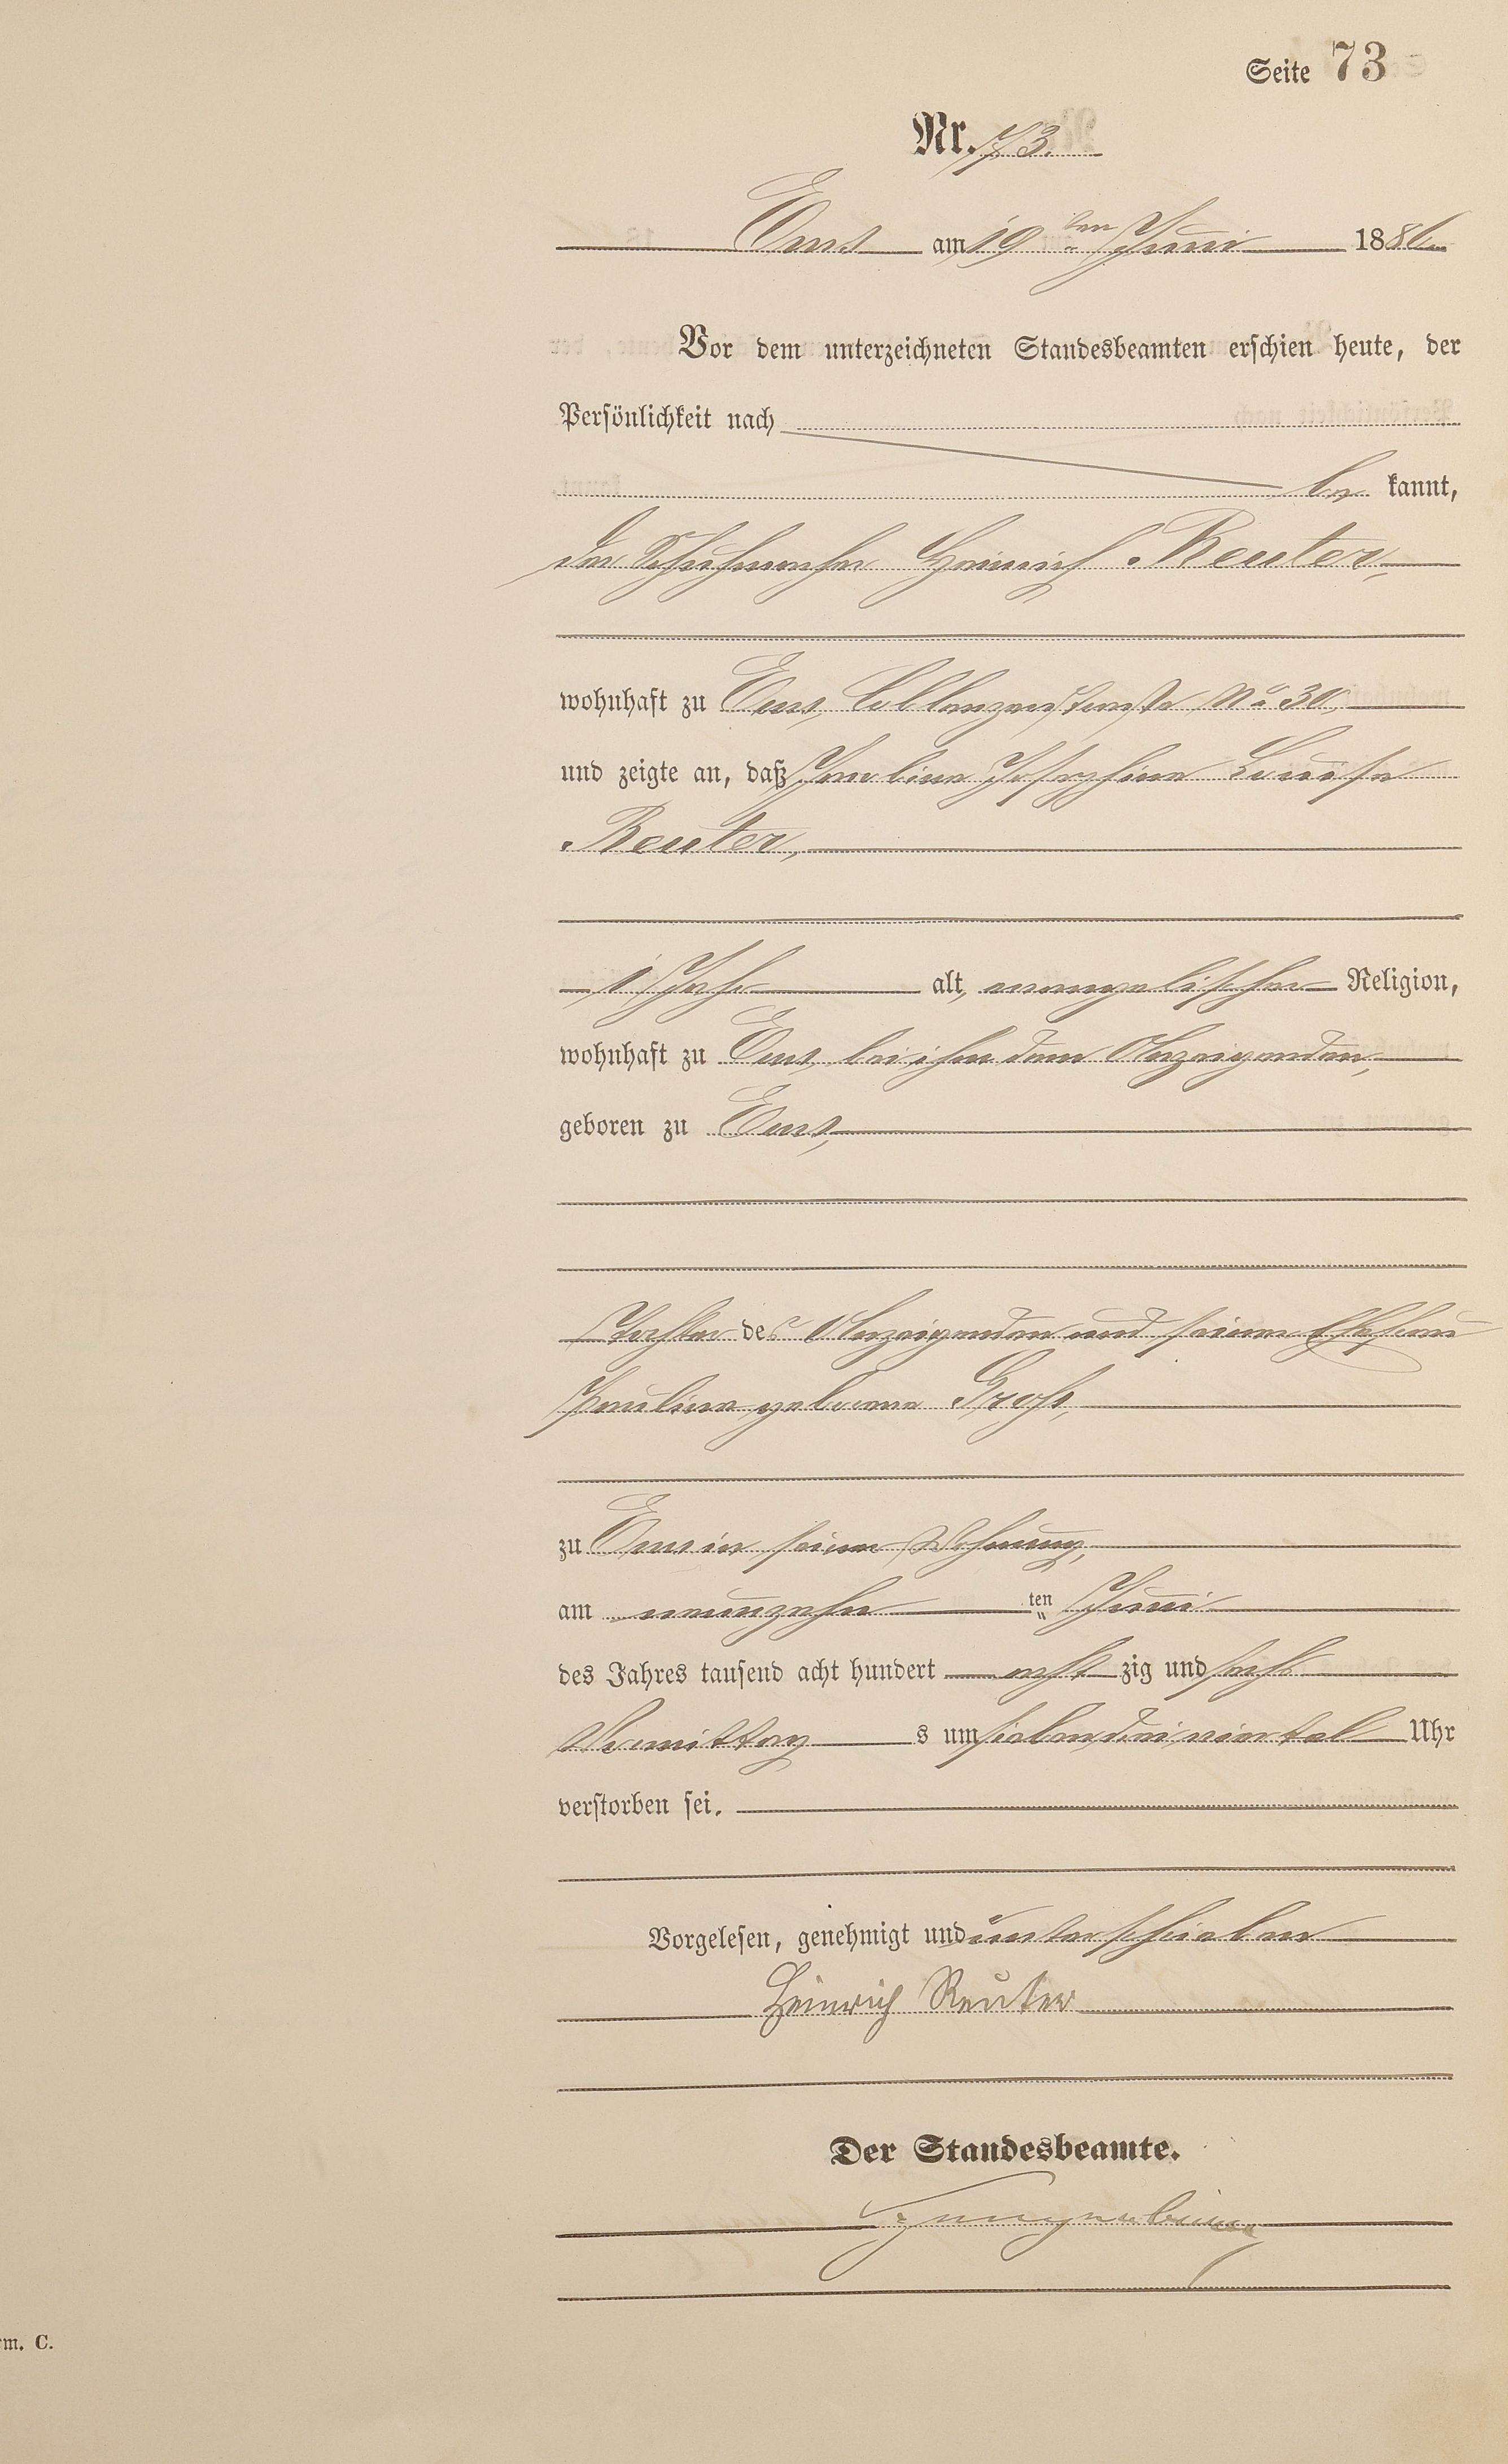 Seite 73
Nr. 73.
Ems am 19ten Juni 1886
Vor dem unterzeichneten Standesbeamten erschien heute, der
Persönlichkeit nach
be kannt,
der Schuhmacher Heinrich Reuter,
wohnhaft zu Ems, Coblenzerstraße No 30,
und zeigte an, daß Josephine Louise
Reuter,
1 Jahr alt, evangelischer Religion,
wohnhaft zu Ems, bei ihm dem Anzeigenden,
geboren zu Ems,
Tochter des Anzeigenden und seiner Ehefrau
Pauline geborene Groß,
zu Ems in seiner Wohnung,
am neunzehn ten Juni
des Jahres tausend acht hundert acht zig und sechs
Vormittag s um sieben dreiviertel Uhr
verstorben sei.
Vorgelesen, genehmigt und unterschrieben
Heinrich Reuter
Der Standesbeamte.
rm. C.